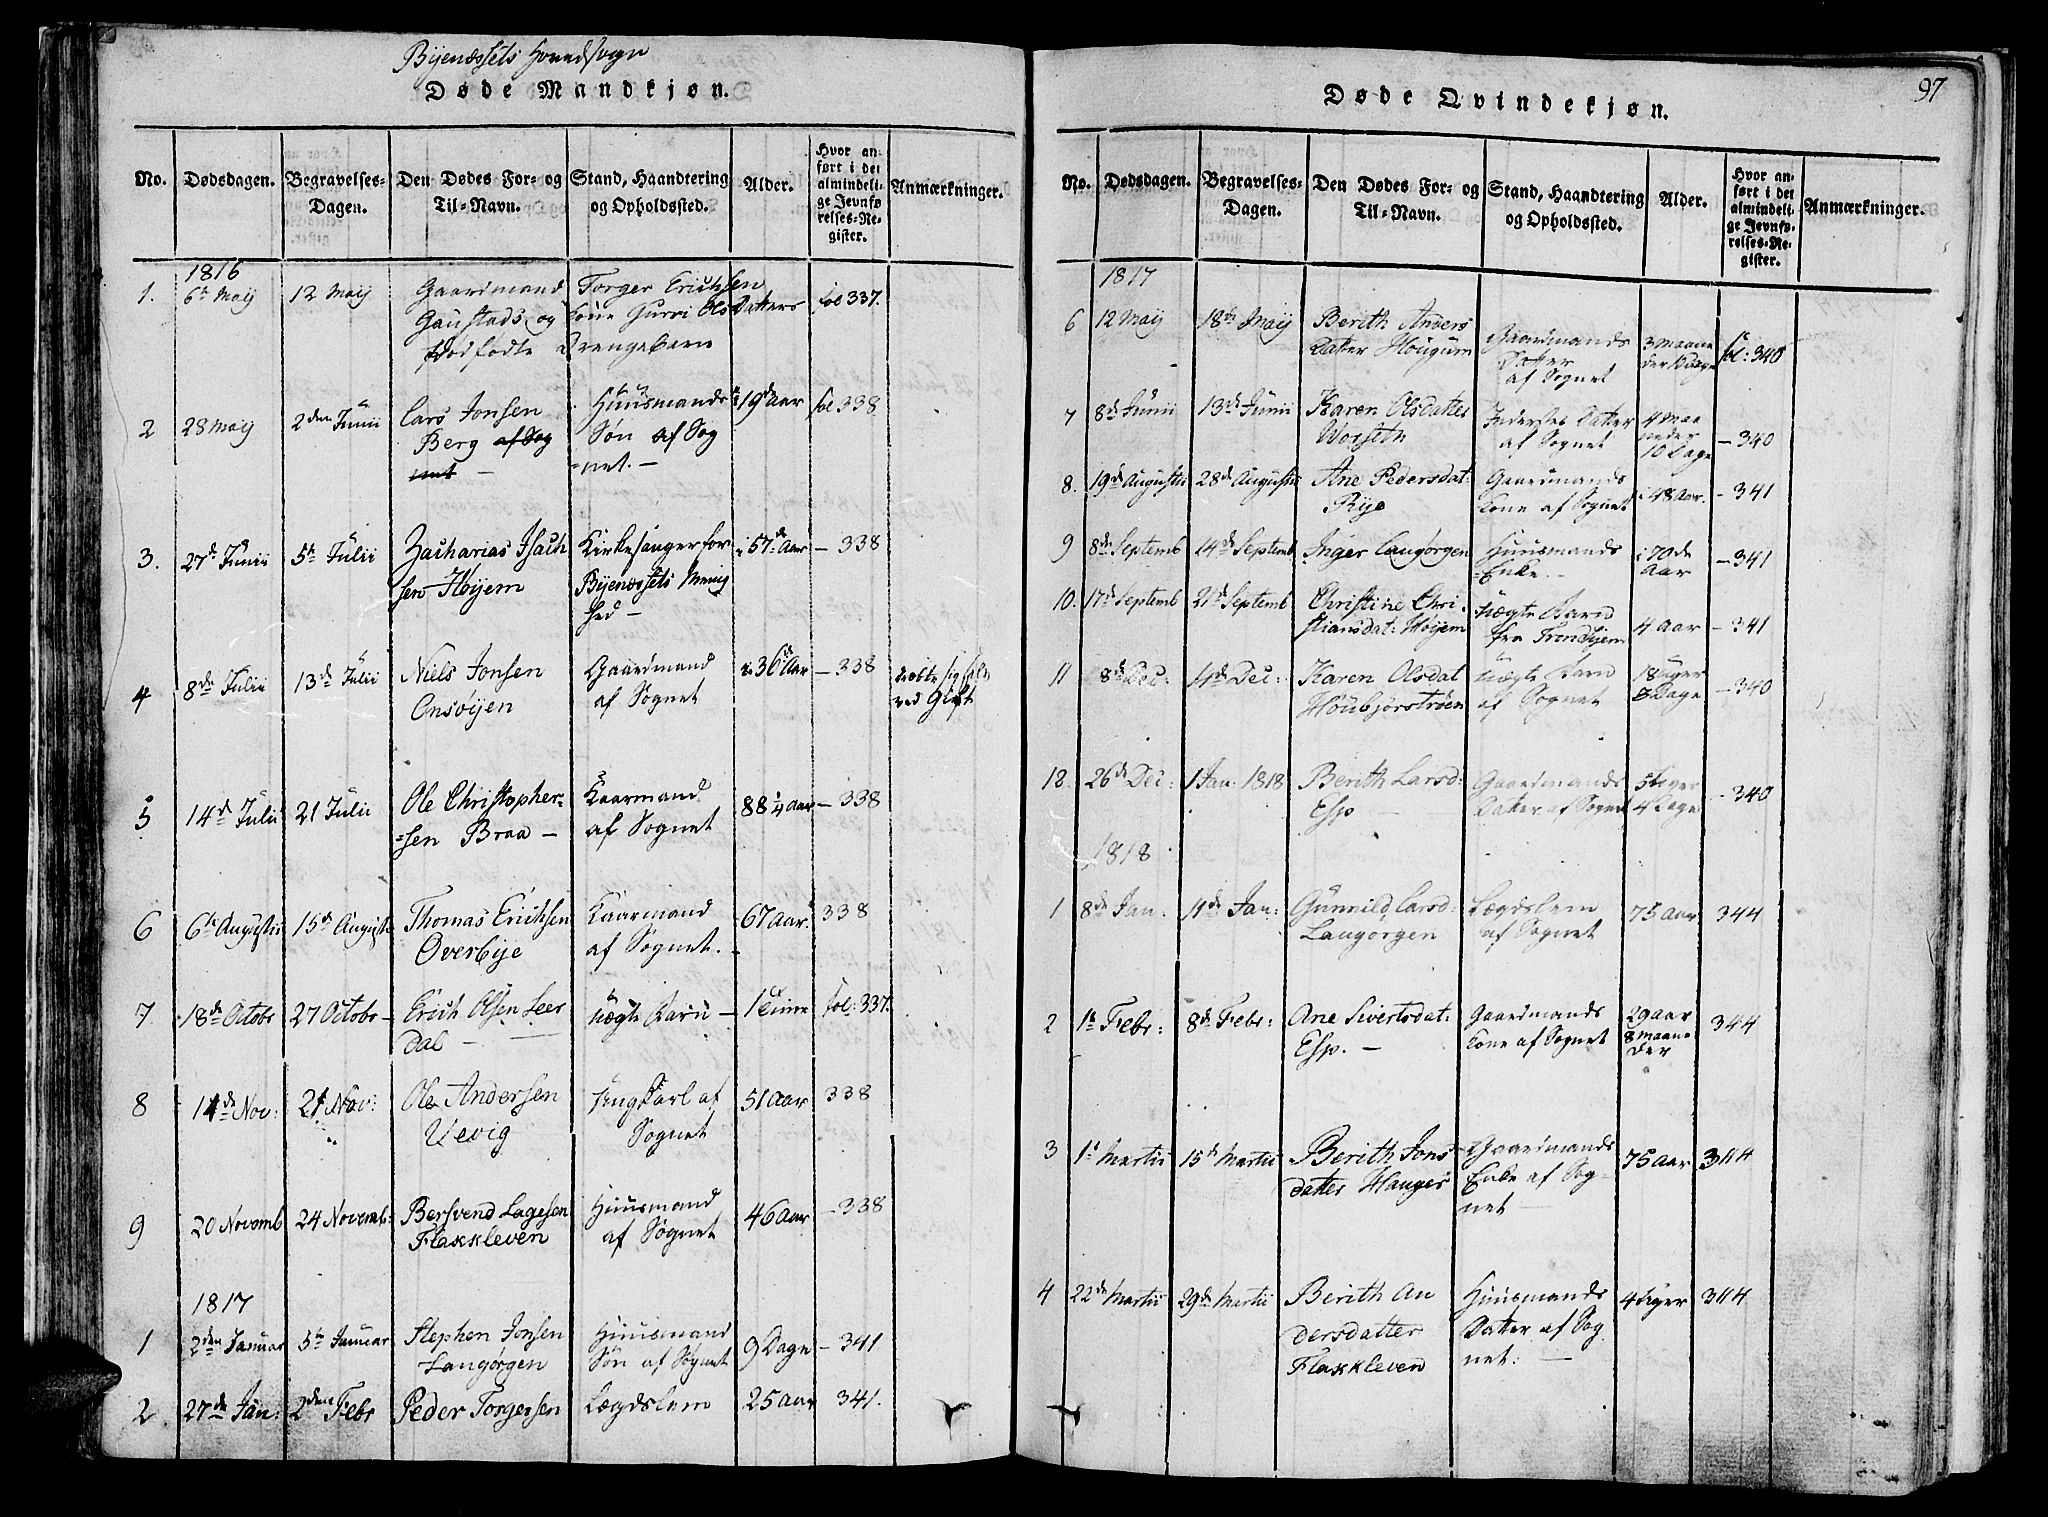 Bÿenæssets Hovedsogn
Døde Mandkjøn.
No. Dødsdagen. Begravelses-Dagen. Den Dødes For- og Til-Navn. Stand, Haandtering og Opholdssted. Alder. Hvor anført i det almindelige Jevnførelses-Register. Anmærkninger.
1816
1. 6te Maij 12 Maij Gaardmand Torger Erichsen
Gaustads og Kone Gurri Olsdatters fol 337.
Dødfødte Drengebarn
2 28 Maij 2den Junii Lars Jonsen Huusmands i 19de Aar fol 338
Berg af Sog Søn af Sog
net - net. -
3. 27de Junii 5te Julii Zacharias Isach Kirkesanger for i 57de Aar - 338
sen Høijem Bijenæssets Menig
hed -
4 8de Julii 13de Julii Niels Jonsen Gaardmand i 36te Aar - 338
Onsøijen af Sognet ved Gift
5 14de Julii 21 Julii Ole Christopher- Kaarmand 88 1/4 Aar - 338
sen Braa - af Sognet
6 6te Augustii 15de August Thomas Erichsen Kaarmand 67 Aar 338
Overbije af Sognet.
7 18de Octobr 27 Octobr - Erich Olsen Leer Uægte Barn - 1 Time fol: 337.
dal -
8 14de Nov: 21 Nov: Ole Andersen Ungkarl af 51 Aar 338
Uevig Sognet
9 20 Novemb 24 Novemb: Bersvend Lagesen Huusmand 46 Aar - 338
Flakkleven af Sognet
1817
1 2den Januar 5te Januar Stephen Jonsen Huusmand 9 Dage - 341
Langørgen Søn af Sognet
2. 27de Jan: 2den Febr Peder Torgersen Lægdslem 25 Aar 341.
97
Døde Qvindekjøn.
No. Dødsdagen. Begravelses-Dagen. Den Dødes For- og Til-Navn. Stand, Haandtering og Opholdssted. Alder. Hvor anført i det almindelige Jevnførelses-Register. Anmærkninger.
1817
6 12 Maij 18de Maij Berith Anders Gaardmands 3 Maane fol: 340
datter Høugum Datter
af Sognet
7 8de Junii 13de Junii Karen Olsdatter Inderstes Datter 4 Maa
Worseth af Sognet neder - 340
10 Dage
8. 19de Augustii 28de Augustii Ane Pedersdat: Gaardmands i 48 Aar. - 341
Rije Kone af Sognet
9 8de Septemb 14de Septemb Inger Langørgen Huusmands i 70de - 341
Enke. - Aar
10. 17de Septemb 21de Septemb Christine Chri- Uægte Barn
stiansdat: Høijem fra Trondhjem 4 Aar - 341
11 8de Dec: 14de Dec: Karen Olsdat Uægte Barn 18 Uger
Høubjørstrøen af Sognet 3 Dage - 340
12. 26de Dec: 1 Jan: 1818 Berith Larsd: Gaardmands 5 Uger
Esp - Datter af Sognet 4 Dage - 340
1818
1 8de Jan: 11de Jan: Gunnild Larsd: Lægdslem 75 Aar 344
Langørgen af Sognet
2 1te Febr: 8de Febr: Ane Sivertsdat: Gaardmands 29 aar 344
Esp. - Kone af Sognet 8 Maane
der
3 1te Martii 15de Martii Berith Jons Gaardmands 75 Aar 344
datter Hanger Enke af Sog-
net -
4 22de Martii 29de Martii Berith An Huusmands 4 Uger 344
dersdatter Datter af Sog
Flakkleven net: -